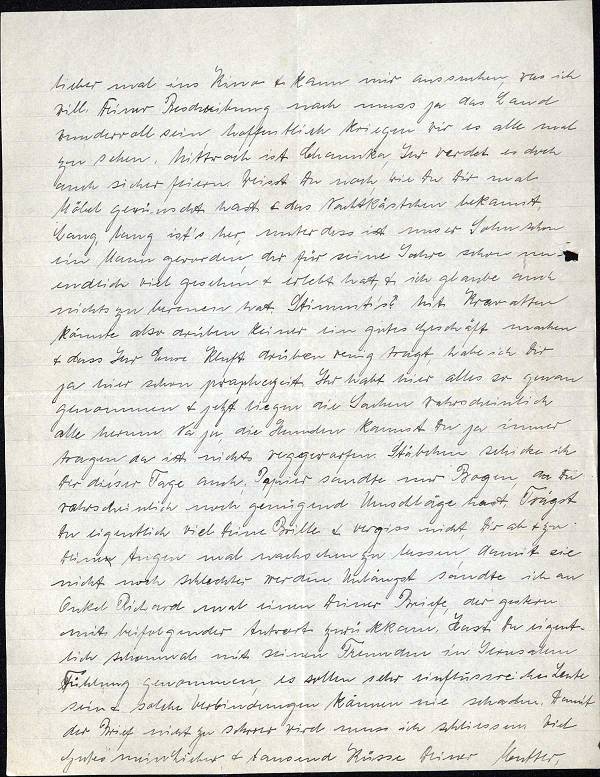 lieber mal ins Kino & kann mir aussuchen was ich
will. Deiner Beschreibung nach muss ja das Land
wundervoll sein hoffentlich kriegen wir es alle mal
zu sehen. Mittwoch ist Chanuka, Ihr werdet es doch
auch sicher feiern. Weisst Du noch wie Du Dir mal
Möbel gewünscht hast & das Nachtkästchen bekamst
Lang, lang ist's her, unterdess ist unser Sohn schon
ein Mann geworden, der für seine Jahre schon un-
endlich viel gesehen & erlebt hat, & ich glaube auch
nichts zu bereuen hat. Stimmt's? Mit Krawatten
könnte also drüben keiner ein gutes Geschäft machen
& dass Ihr Eure Kluft drüben wenig tragt habe ich Dir
ja hier schon prophezeit. Ihr habt hier alles so genau
genommen & jetzt liegen die Sachen wahrscheinlich
alle herum. Na ja, die Hemden kannst Du ja immer
tragen da ist nichts weggeworfen. Stäbchen schicke ich
Dir dieser Tage auch, Papier sandte nur Bogen, da Du
wahrscheinlich noch genügend Umschläge hast. Trägst
Du eigentlich viel Deine Brille & vergiss nicht, Dir ab & zu
Deine Augen mal nachsehen zu lassen, damit sie
nicht noch schlechter werden. Unlängst sandte ich an
Onkel Richard mal einen Deiner Briefe, der gestern
mit beifolgender Antwort zurückkam. Hast Du eigent-
lich schonmal mit seinen Freunden in Jerusalem
Fühlung genommen, es sollen sehr einflussreiche Leute
sein & solche Verbindungen können nie schaden. Damit
der Brief nicht zu schwer wird muss ich schliessen. Viel
Gutes mein Lieber & tausend Küsse Deiner Mutter.